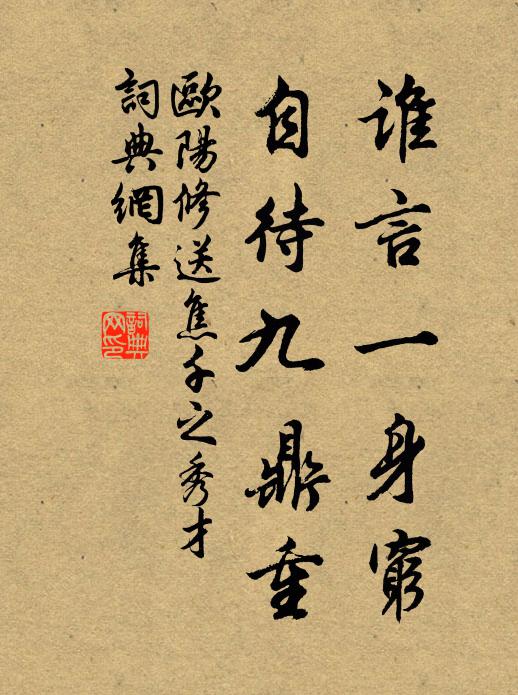 誰言一身窮
自待九鼎重
歐陽修送焦千之秀才
詞典網集
詞典網印